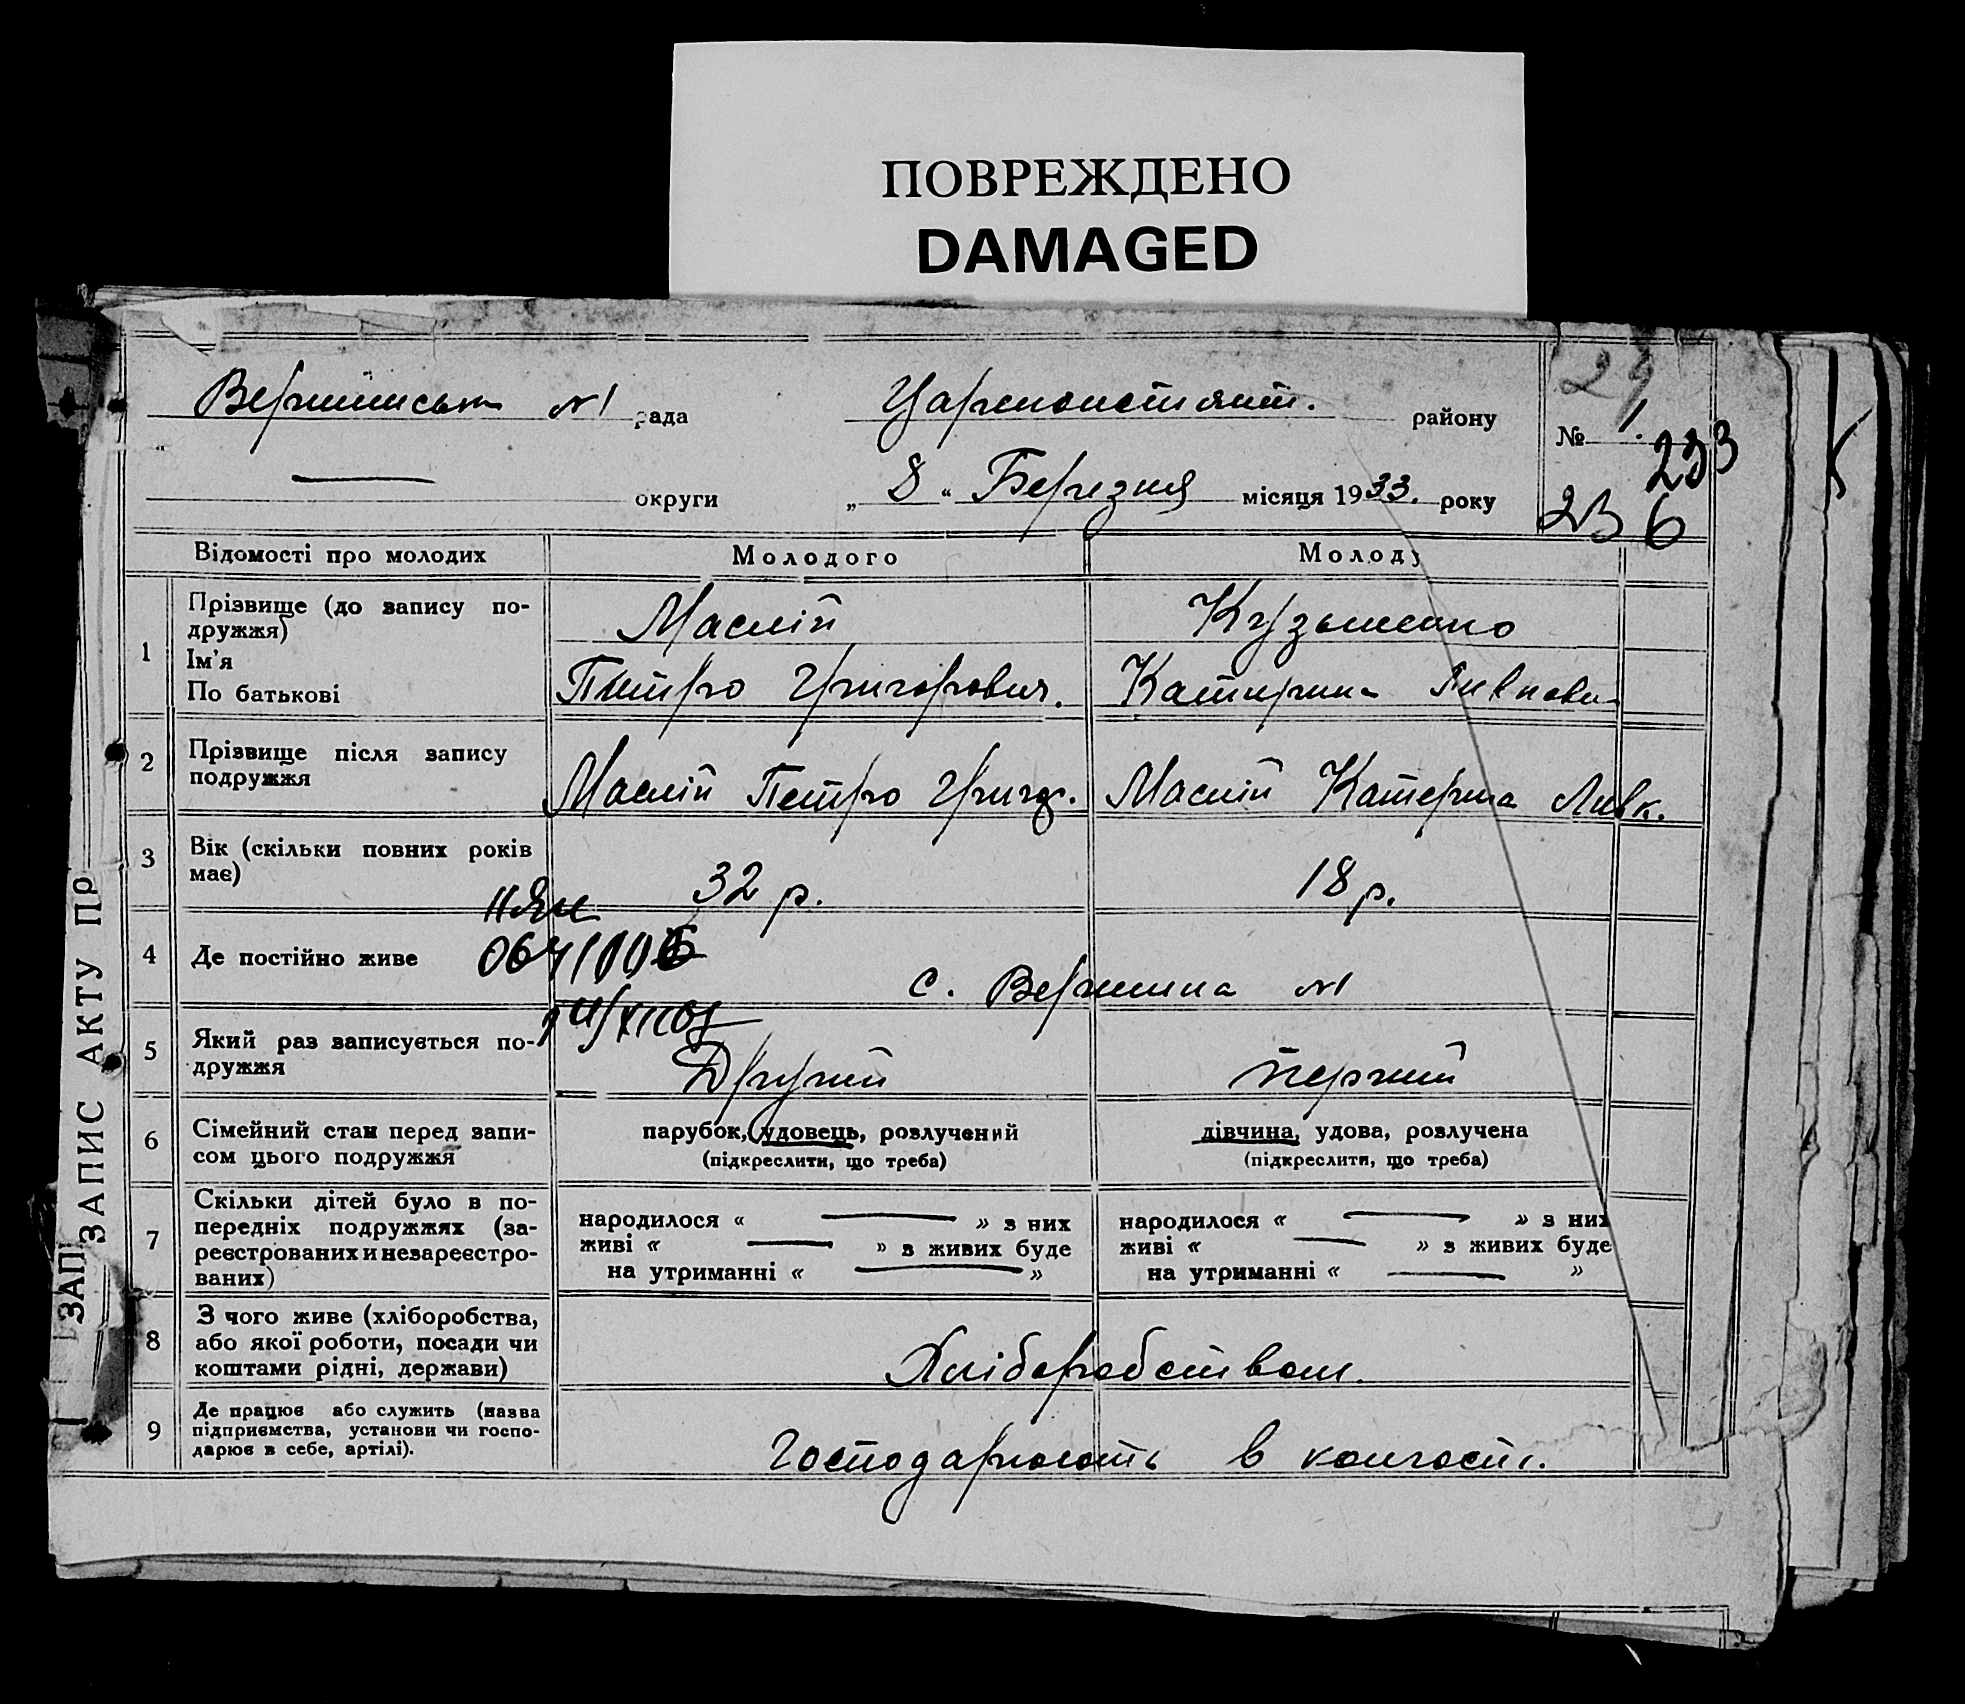 ПОВРЕЖДЕНО
DAMAGED
24
Вершинська №1 рада
Цареконстянт. району
№ 1.
233
округи
„ 8 “ Березня місяця 1933. року
236
Відомості про молодих
Молодого
Молоду
1
Прізвище (до запису по-
дружжя)
Ім'я
По батькові
Маслій
Петро Григорович.
Кузьменко
Катирина
2
Прізвище після запису
подружжя
Маслій Петро Григор.
Маслій Катерина Явк.
3
Вік (скільки повних років
має)
32 р.
18 р.
4
Де постійно живе
с. Вершина №1
5
Який раз записується по-
дружжя
Другий
перший
6
Сімейний стан перед запи-
сом цього подружжя
парубок, удовець, розлучений
(підкреслити, що треба)
дівчина, удова, розлучена
(підкреслити, що треба)
7
Скільки дітей було в по-
передніх подружжях (за-
реєстрованих и незареєстро-
ваних)
народилося « — » з них
живі « — » з живих буде
на утриманні « — »
народилося « — » з них
живі « — » з живих буде
на утриманні « — »
8
З чого живе (хліборобства,
або якої роботи, посади чи
коштами рідні, держави)
Хліборобством.
9
Де працює або служить (назва
підприємства, установи чи госпо-
дарює в себе, артілі).
Господарюють в колгості.
ЗАПИС АКТУ ПР
ЗАП